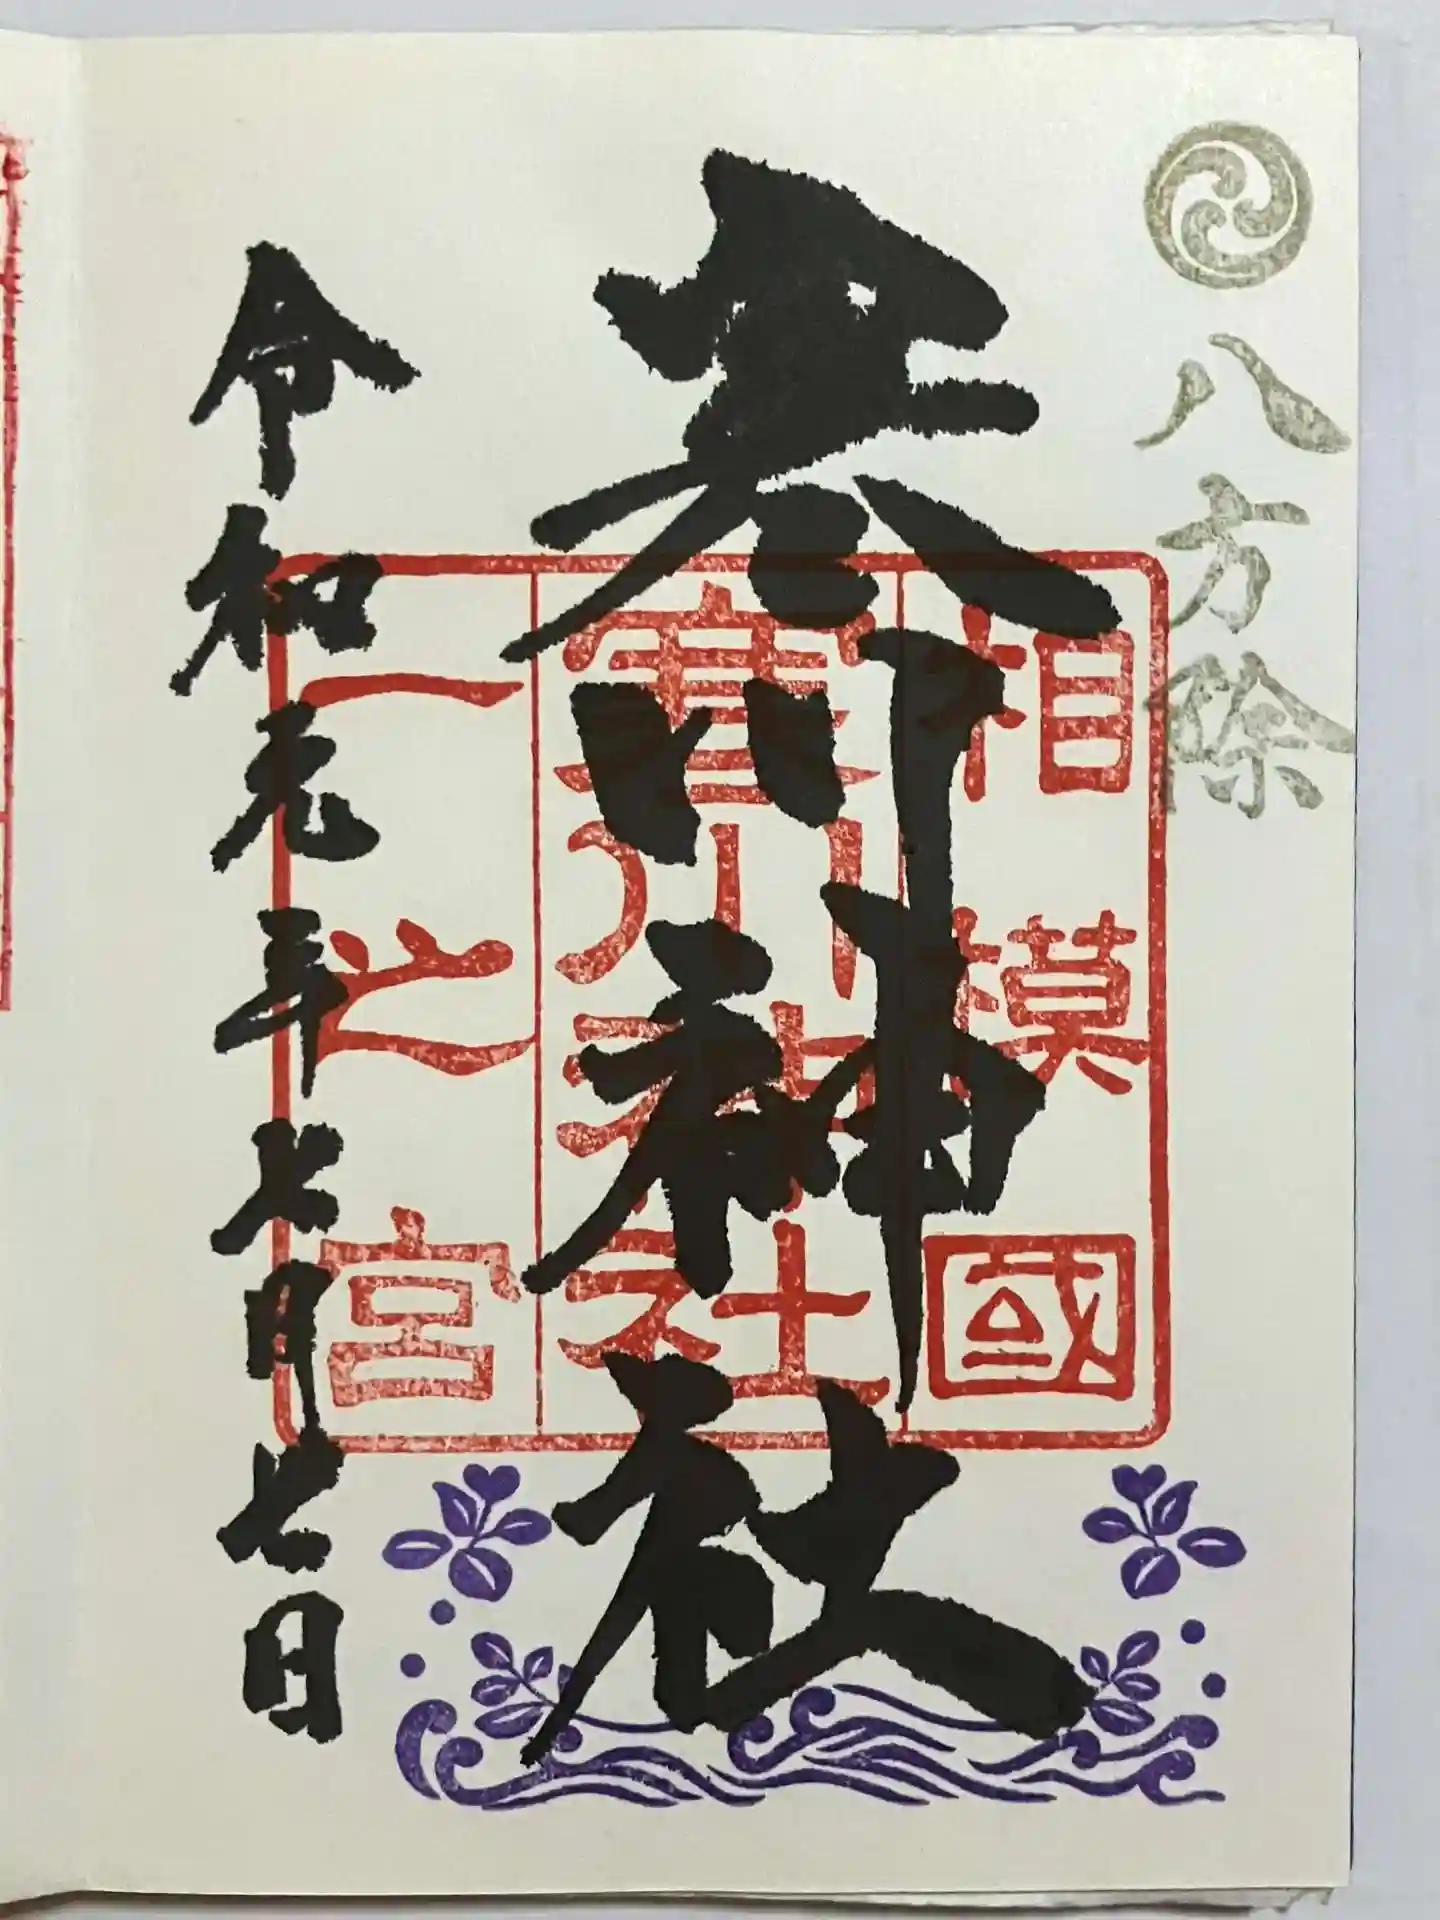 八方除
寒川神社
相模國
寒川神社
一之宮
令和元年七月廿七日